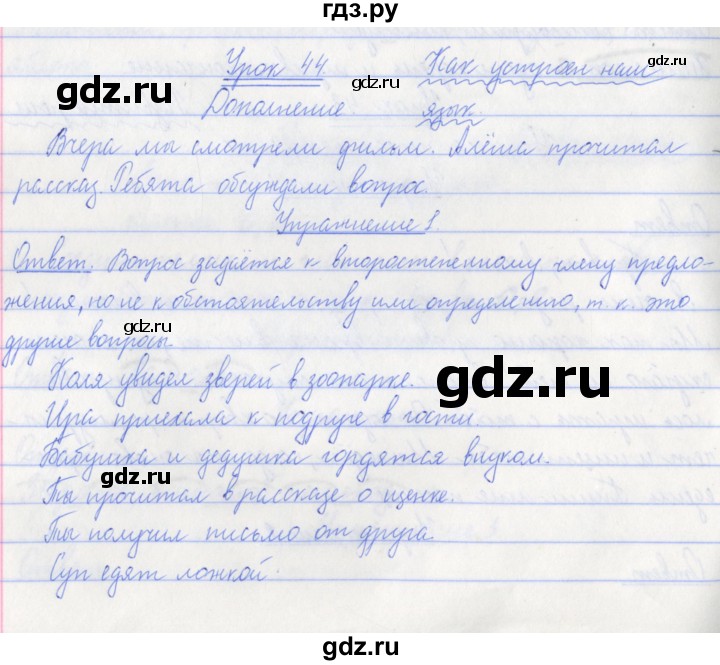 гдз.ру
Урок 44. Как устроен наш
Дополнение язык.
Вчера мы смотрели фильм. Алёша прочитал
рассказ. Ребята обсуждали вопрос.
Упражнение 1.
Ответ. Вопрос задаётся к второстепенному члену предло-
жения, но не к обстоятельству или определению, т. к. это
другие вопросы.
Коля увидел зверей в зоопарке.
Ира приехала к подруге в гости.
Бабушка и дедушка гордятся внуком.
Ты прочитал в рассказе о щенке.
Ты получил письмо от друга.
Суп едят ложкой.
gdz.ru
gdz.ru
gdz.ru
gdz.ru
gdz.ru
gdz.ru
gdz.ru
gdz.ru